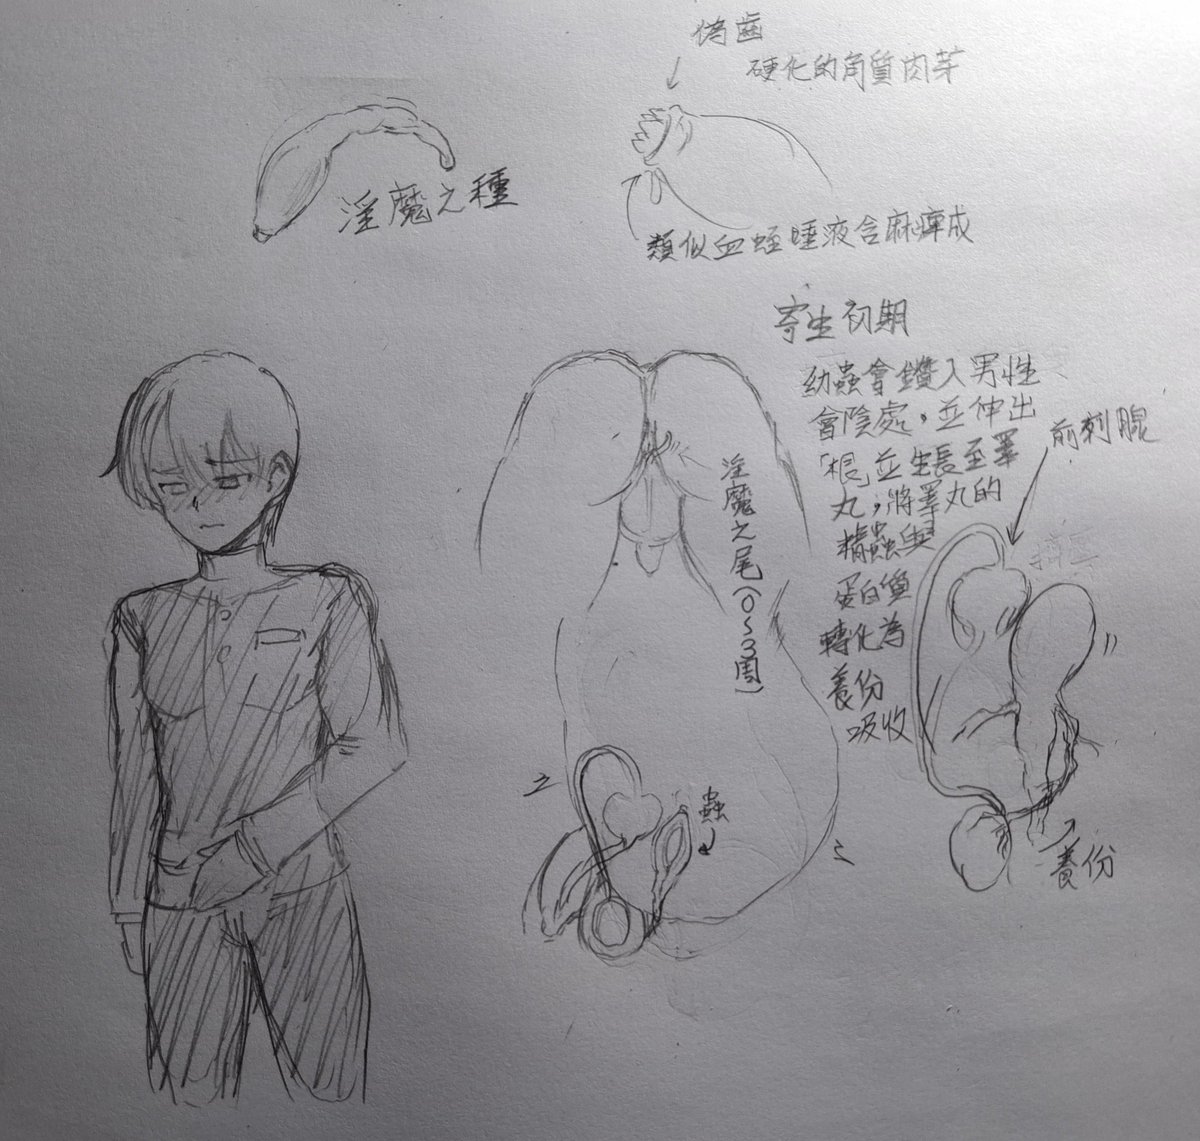 偽齒
硬化的角質肉芽
淫魔之種
類似血蛭唾液含麻痺成
寄生初期
幼蟲會鑽入男性
會陰處，並伸出
「根」並生長至睪
丸，將睪丸的
精蟲與
蛋白質
轉化為
養份
吸收
前刺腺
淫魔之尾(0~3周)
蟲
養份